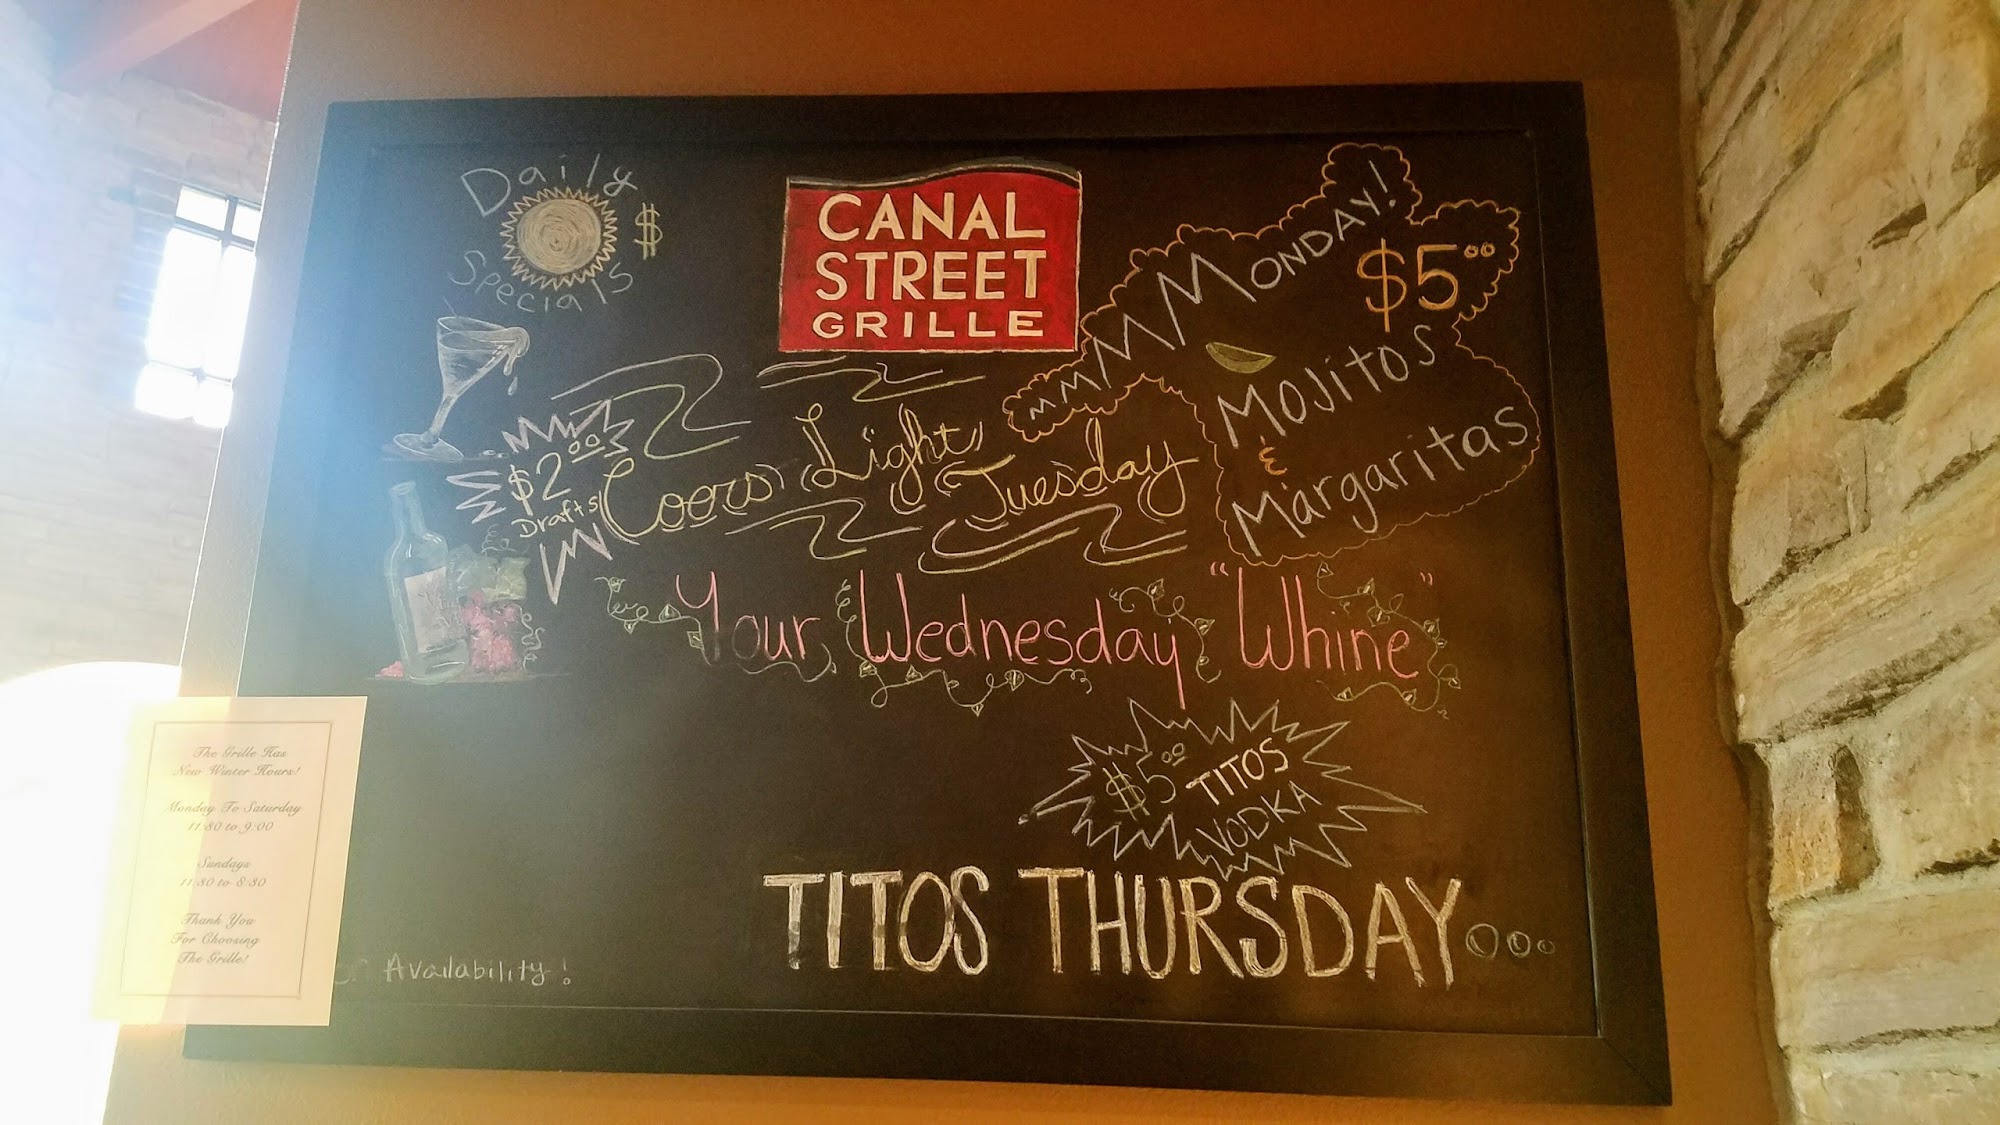 Daily $
Specials
CANAL
STREET
GRILLE
MMMMMONDAY!
$5.00
MOJITOS
&
Margaritas
$2.00
Drafts
Coors Light Tuesday
Your Wednesday "Whine"
$5.00 TITOS
VODKA
TITOS THURSDAY...
Availability!
The Grille Has
New Winter Hours!
Monday To Saturday
11:30 to 9:00
Sundays
11:30 to 8:30
Thank You
For Choosing
The Grille!